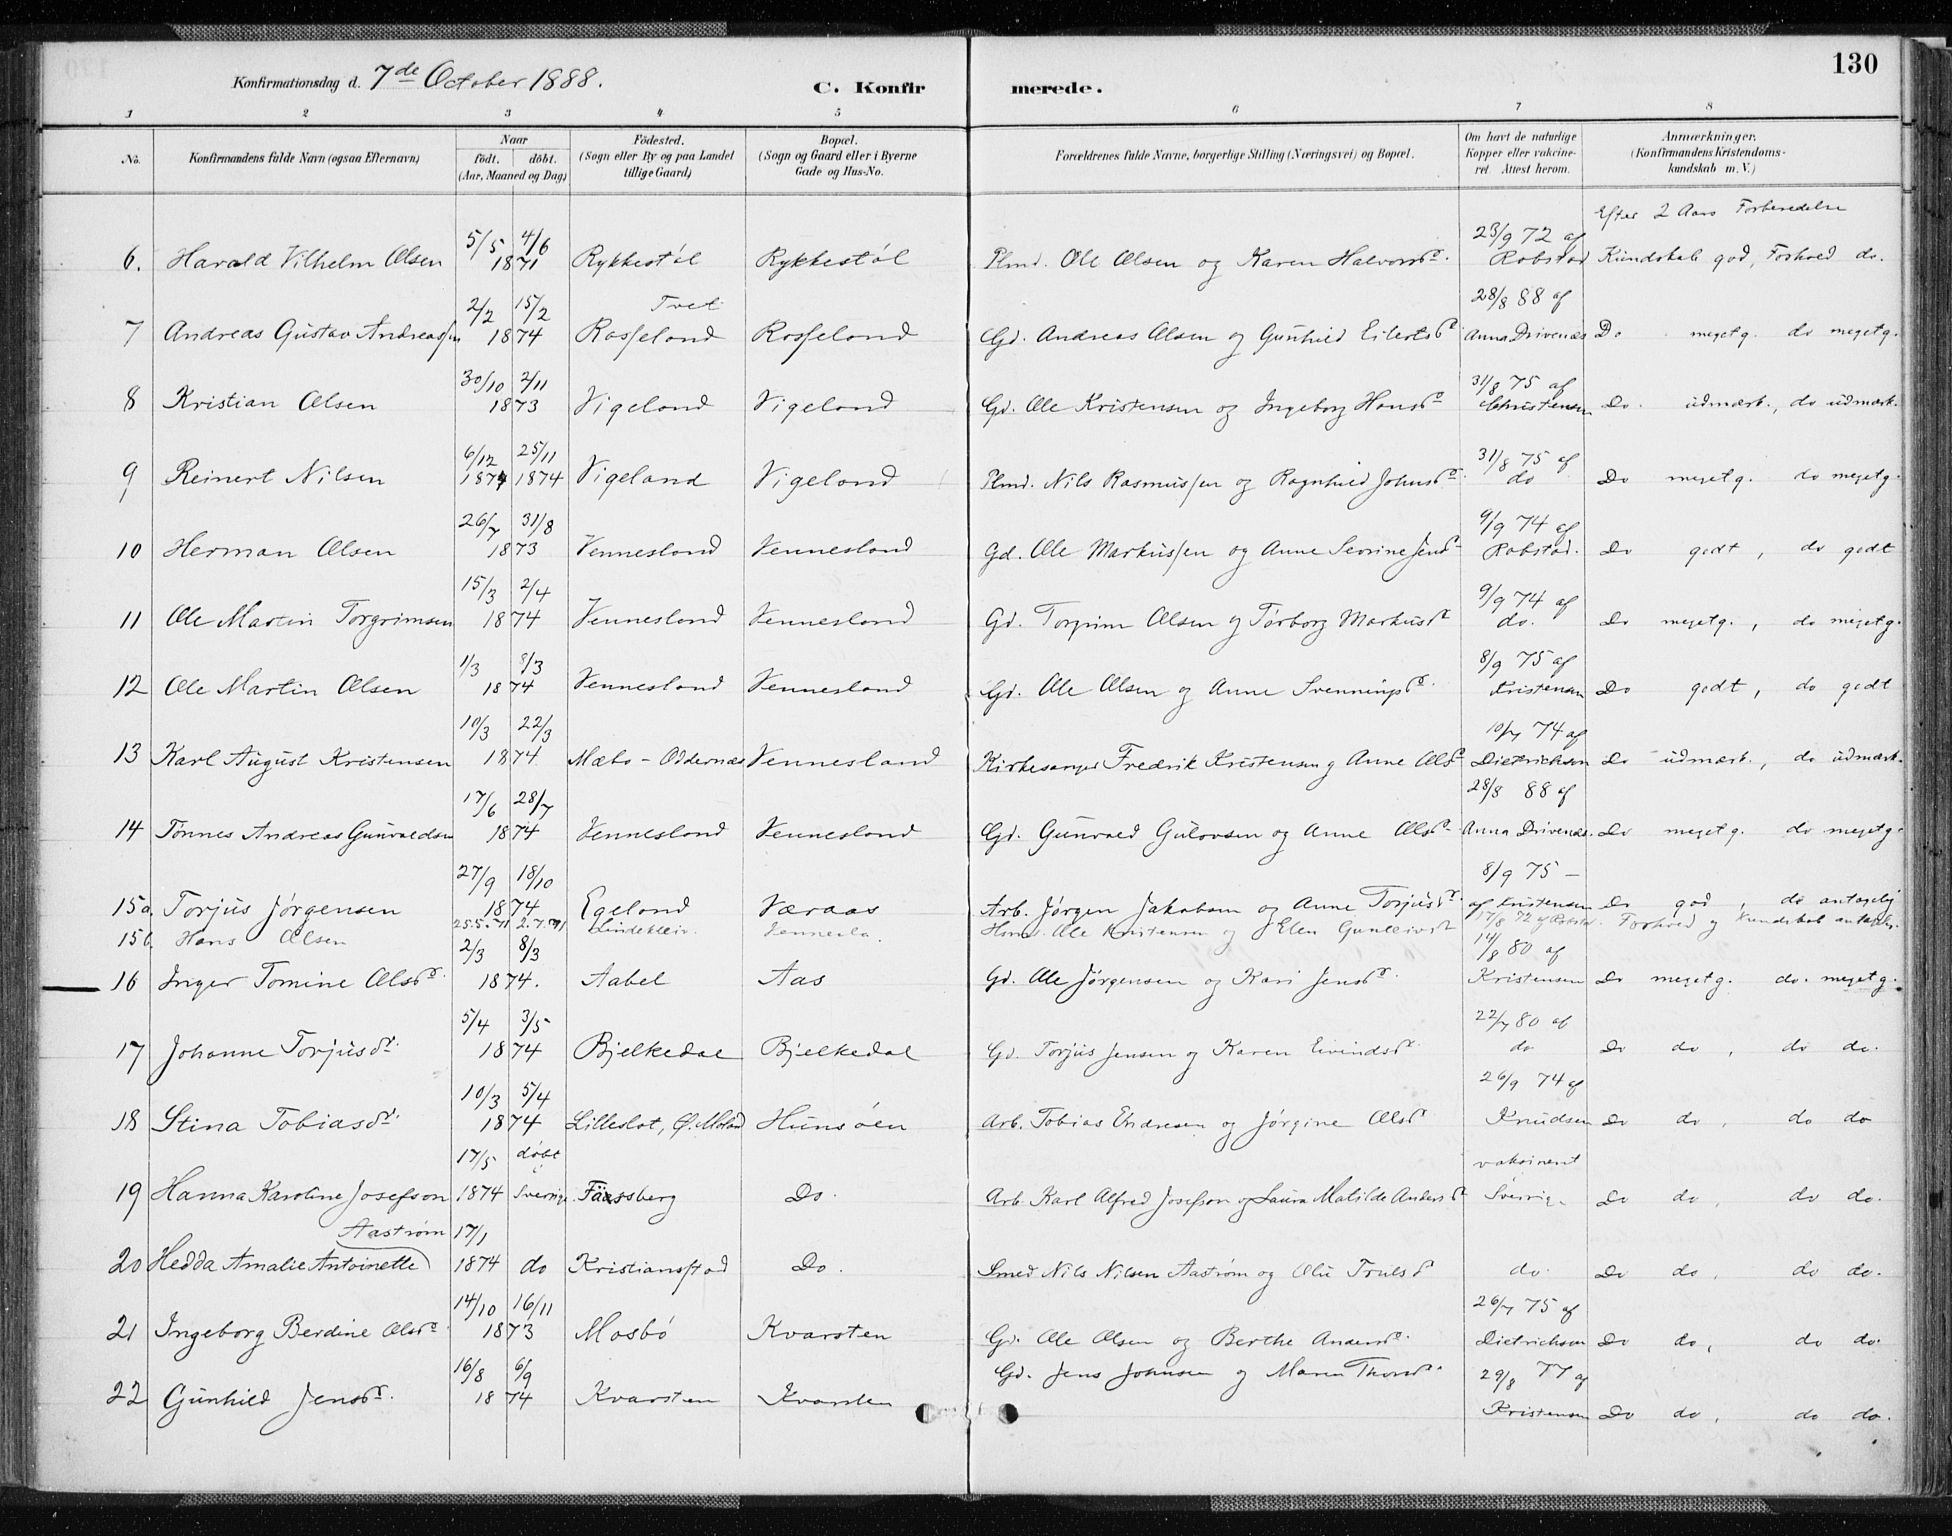 130
Konfirmationsdag d. 7de October 1888.
C. Konfirmerede.
1 2 3 4 5 6 7 8
No. Konfirmandens fulde Navn (ogsaa Efternavn) Naar födt. döbt. (Aar, Maaned og Dag) Födested. (Sogn eller By og paa Landet tillige Gaard) Bopæl. (Sogn og Gaard eller i Byerne Gade og Hus-No. Forældrenes fulde Navne, borgerlige Stilling (Næringsvei) og Bopæl. Om havt de naturlige Kopper eller vakcineret. Attest herom. Anmærkninger. (Konfirmandens Kristendomskundskab m. V.)
Efter 2 Aars Forberedelse
5/5 4/6 23/9 72 af
6. Harald Vilhelm Olsen 1871 Rykkestöl Rykkestöl Plmd. Ole Olsen og Karen Halvorsdr. Robstad Kundskab god, Forhold do.
2/2 15/2 Tvet 28/8 88 af
7 Andreas Gustav Andreassen 1874 Rosseland Rosseland Gd. Andreas Olsen og Gunhild Eilertsdr Anna Drivenæs Do megetg. do megetg.
30/10 2/11 31/8 75 af
8 Kristian Olsen 1873 Vigeland Vigeland Gd. Ole Kristensen og Ingeborg Hansdr Christensen Do. udmærk., do udmærk.
6/12 25/11 31/8 75 af
9 Reinert Nilsen 1874 1874 Vigeland Vigeland Plmd. Nils Rasmussen og Ragnhild Johnsdr. do Do megetg. do megetg.
26/7 31/8 9/9 74 af
10 Herman Olsen 1873 Vennesland Vennesland Gd. Ole Markussen og Anne Severine Jensdr Robstad. Do godt, do godt
15/3 2/4 9/9 74 af
11 Ole Martin Torgrimsen 1874 Vennesland Vennesland Gd. Torgrim Olsen og Torborg Markusdr do. Do megetg., do megetg.
1/3 8/3 8/9 75 af
12 Ole Martin Olsen 1874 Vennesland Vennesland Gd. Ole Olsen og Anne Svenningsdr. Kristensen Do godt, do godt
10/3 22/3 10/7 74 af
13 Karl August Kristensen 1874 Mæbö - Oddernæs Vennesland Kirkesanger Fredrik Kristensen og Anne Olsdr Dietrichson Do udmærk., do udmærk.
17/6 28/7 28/8 88 af
14 Tönnes Andreas Gunvaldsen 1874 Vennesland Vennesland Gd. Gunvald Gulovsen og Anne Olsdr Anna Drivenæs. Do megetg. do megetg.
27/9 18/10 8/9 75 -
15a. Torjus Jørgensen 1874 Egeland Væraas Arb. Jørgen Jakobsen og Anne Torjusdr. af Kristensen Do god, do antagelig
15b. Hans Olsen 25.5.71 2.7.71 Lindekleiv. Vennesla. Ole Kristensen og Elen Gunleivsdr 17/8 72 af Robstad. Forhold og Kundskab antagel.
2/3 8/3 14/8 80 af
16 Inger Tomine Olsdr. 1874. Aabel Aas Gd. Ole Jørgensen og Kari Jensdr. Kristensen Do megetg. do. megetg.
5/4 3/5 22/7 80 af
17 Johanne Torjusdr. 1874 Bjelkedal Bjelkedal Gd. Torjus Jensen og Karen Eivindsdr. do Do do, do do.
10/3 5/4 26/9 74 af
18 Stina Tobiasdr. 1874 Lilleslot, Ø. Moland Hunsöen Arb. Tobias Endresen og Jørgine Olsdr Knudsen Do do, do do
17/5 döbt i vakcineret
19 Hanna Karoline Josefson 1874 Sverige Fässberg Do. Arb. Karl Alfred Josefson og Laura Matilde Andersdr Sverrig. Do do, do do.
Aaström 17/1
20 Hedda Amalie Antoinette 1874 do Kristiansstad Do. Smed Nils Nilsen Aaström og Olu Trulsdr do. Do do, do do.
14/10 16/11 26/7 75 af
21 Ingeborg Berdine Olsdr. 1873 Mosbö Kvarsten Gd. Ole Olsen og Berthe Andersdr. Dietrichson Do do, do do.
16/8 6/9 Gd. Jens Johnsen og Maren Thorsdr. 29/8 77 af
22 Gunhild Jensdr. 1874 Kvarsten Kvarsten Kristensen Do do, do do.